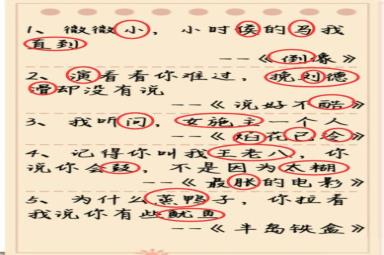 1、微微小，小时侯的马我
直到
--《倒像》
2、演看看你难过，挽刘德
滑却没有说
--《说好不酷》
3、我听问，女施主一个人
--《焰花已给》
4、记得你叫我王老八，你
说你会疑，不是因为太糊
--《最胀的电影》
5、为什么黄鸭子，你拉看
我说你有些鱿鱼
--《半岛铁盒》